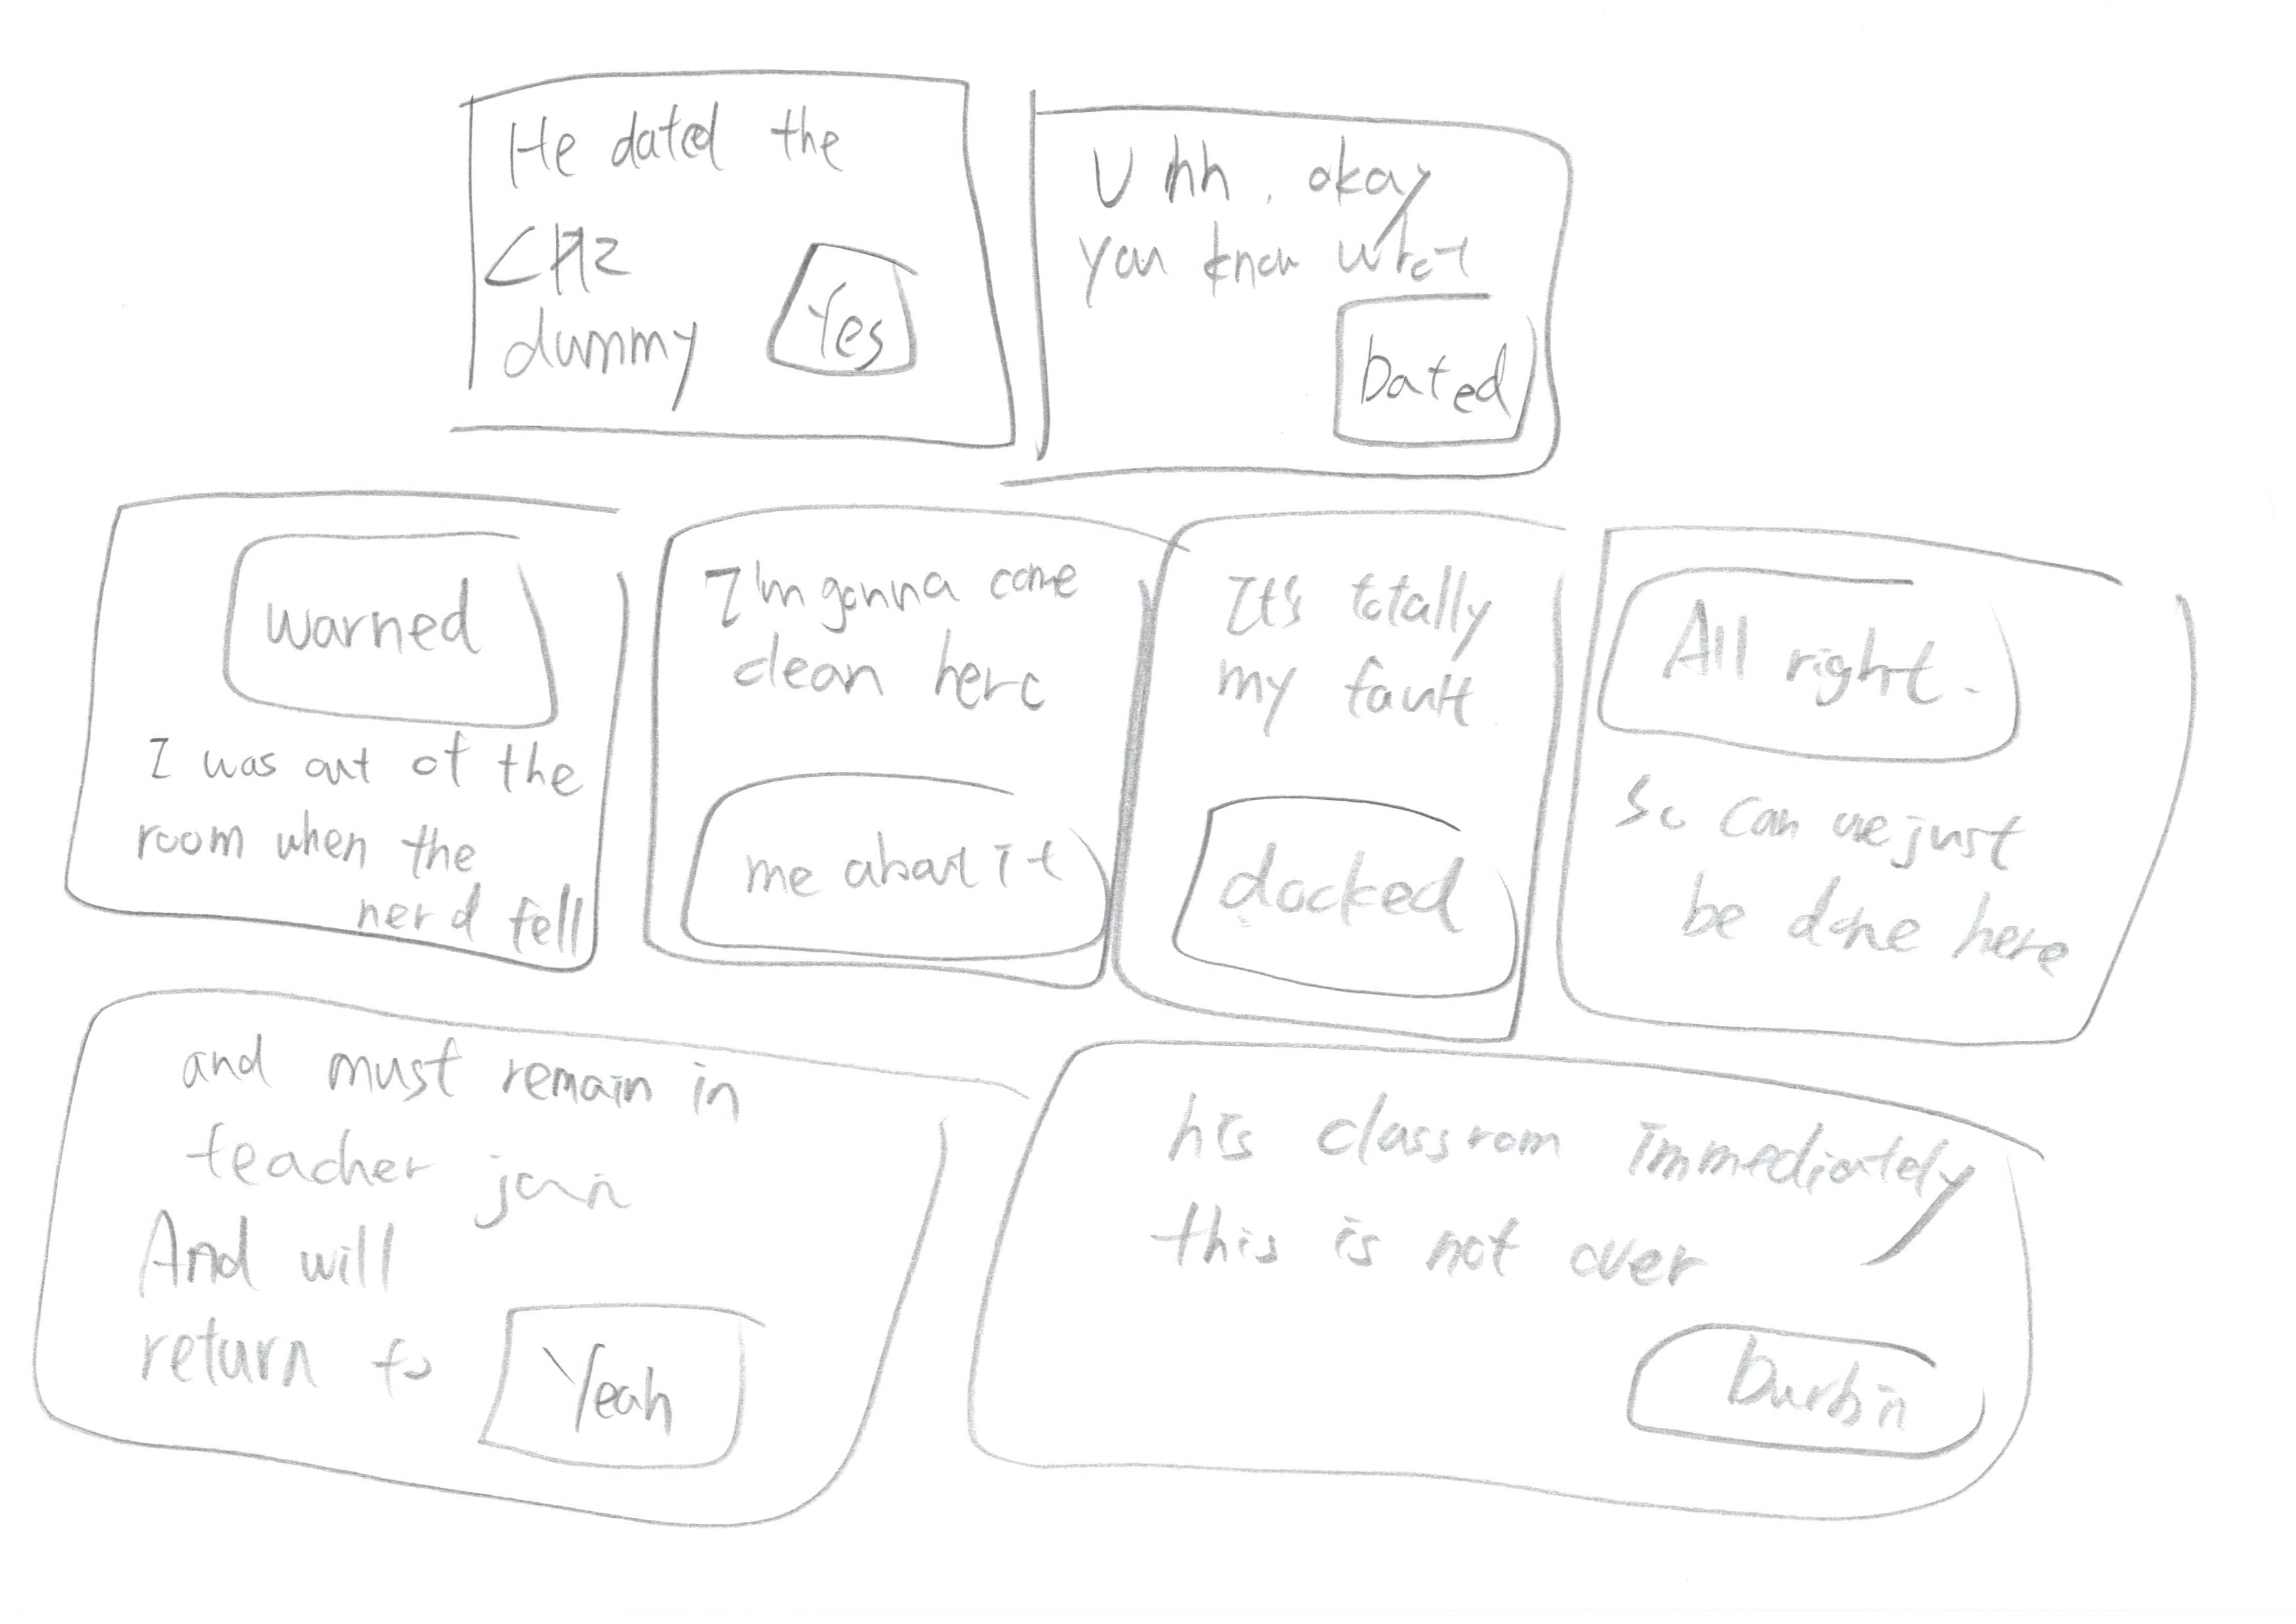 He dated the
dummy
Yes
Uhh, okay
you know what
Dated
warned
I was out of the
room when the
nerd fell
I'm gonna come
clean here
me about it
It's totally
my fault
docked
All right.
So can we just
be done here
and must remain in
teacher join
And will
return to
Yeah
his classrom immediately
this is not over
Durbin